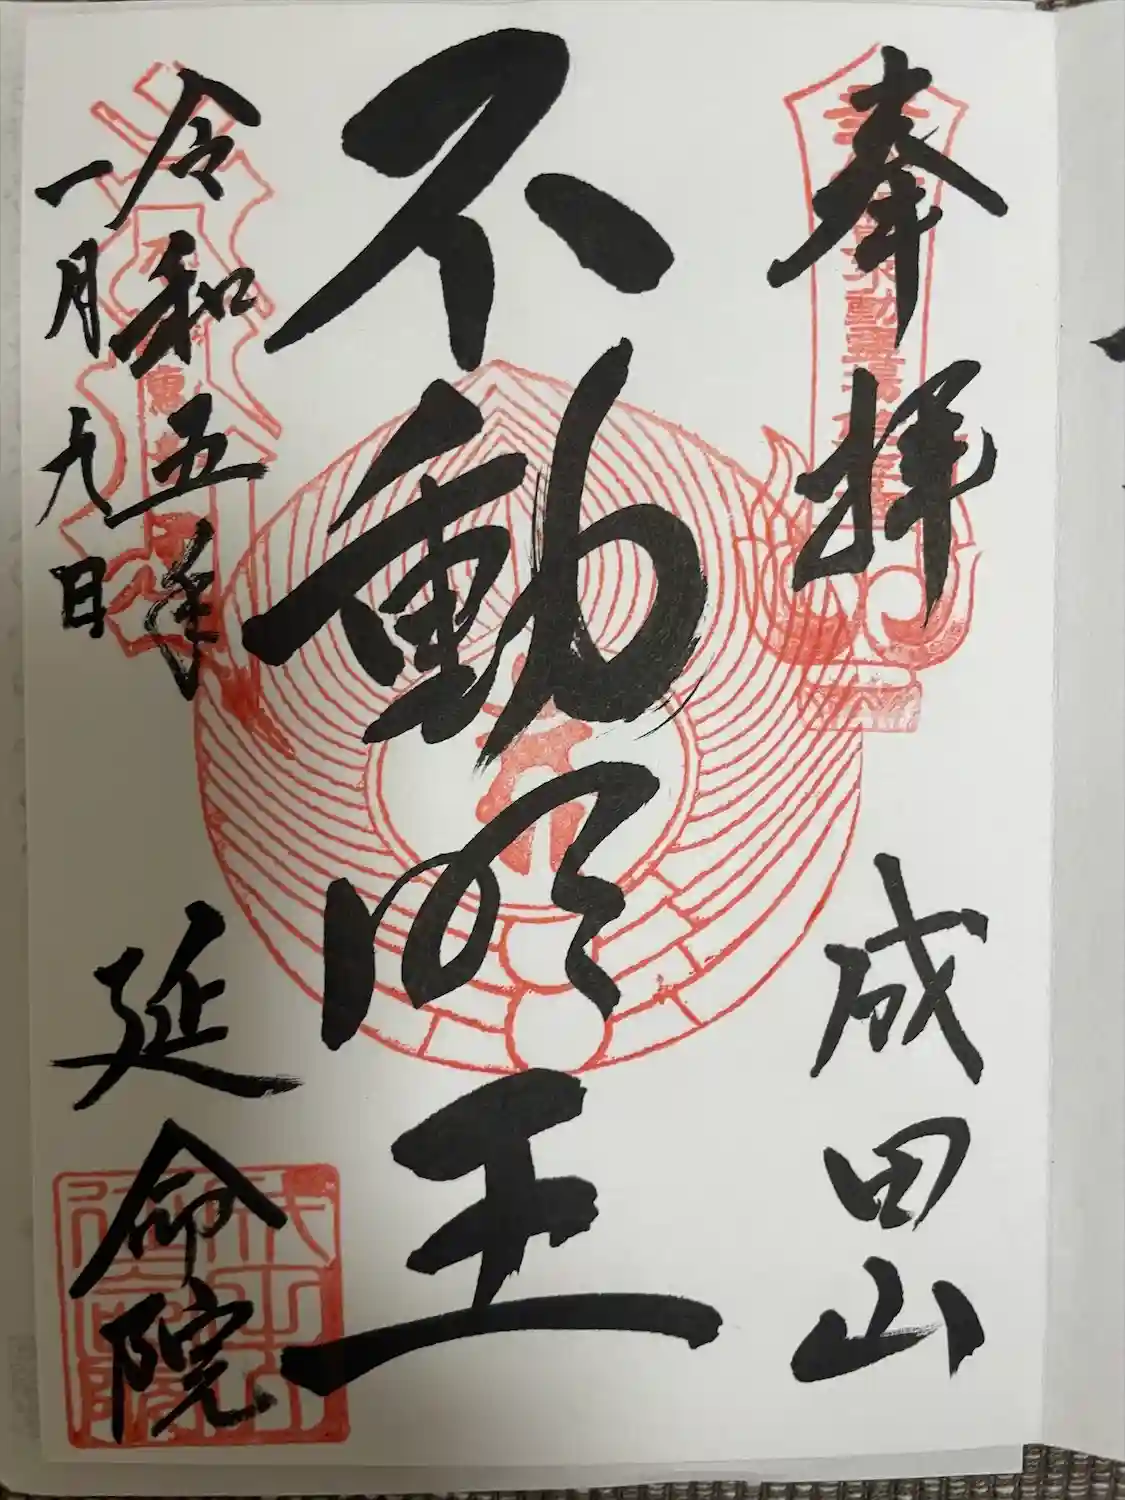 奉拝
成田山
不動明王
令和五年
一月九日
延命院